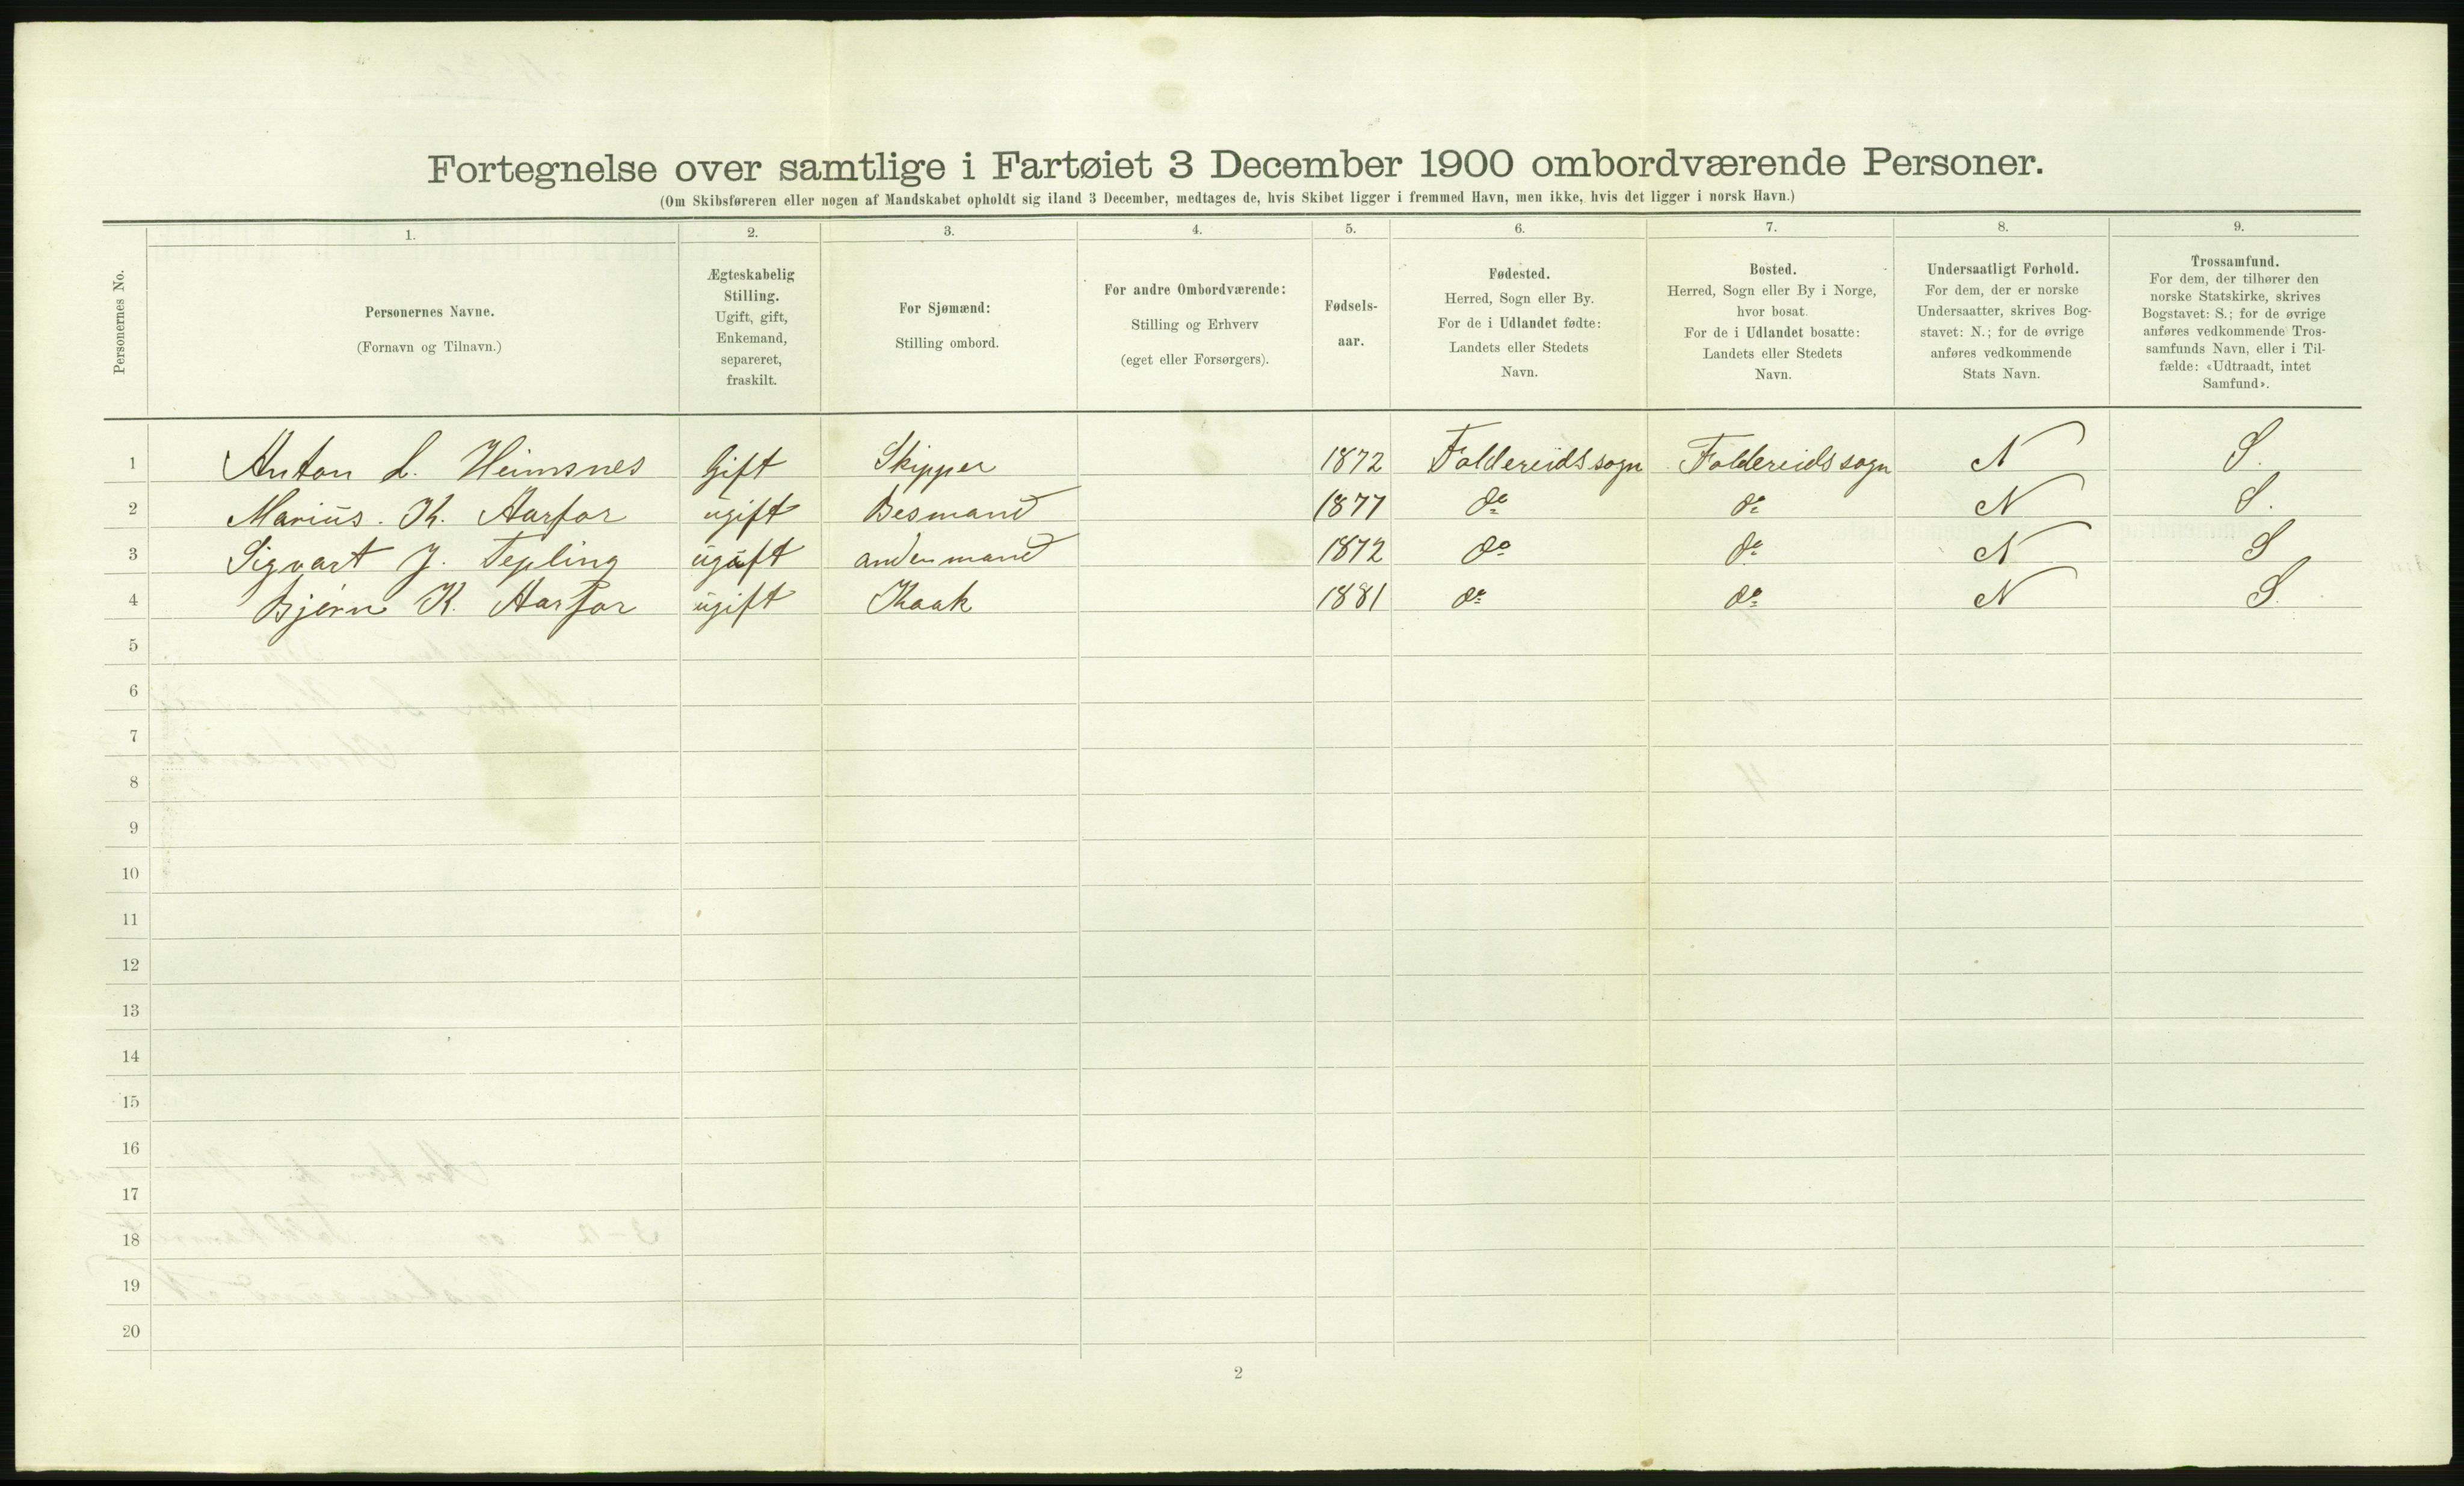 Fortegnelse over samtlige i Fartøiet 3 December 1900 ombordværende Personer.
(Om Skibsføreren eller nogen af Mandskabet opholdt sig iland 3 December, medtages de, hvis Skibet ligger i fremmed Havn, men ikke, hvis det ligger i norsk Havn.)
Personernes No.
1.
Personernes Navne.
(Fornavn og Tilnavn.)
2.
Ægteskabelig
Stilling.
Ugift, gift,
Enkemand,
separeret,
fraskilt.
3.
For Sjømænd:
Stilling ombord.
4.
For andre Ombordværende:
Stilling og Erhverv
(eget eller Forsørgers).
5.
Fødsels-
aar.
6.
Fødested.
Herred, Sogn eller By.
For de i Udlandet fødte:
Landets eller Stedets
Navn.
7.
Bosted.
Herred, Sogn eller By i Norge,
hvor bosat.
For de i Udlandet bosatte:
Landets eller Stedets
Navn.
8.
Undersaatligt Forhold.
For dem, der er norske
Undersaatter, skrives Bog-
stavet: N.; for de øvrige
anføres vedkommende
Stats Navn.
9.
Trossamfund.
For dem, der tilhører den
norske Statskirke, skrives
Bogstavet: S.; for de øvrige
anføres vedkommende Tros-
samfunds Navn, eller i Til-
fælde: «Udtraadt, intet
Samfund».
1 Anton L. Heimsnes Gift Skipper 1872 Foldereids sogn Foldereids sogn N S.
2 Marius. K. Aarfor ugift Besmand 1877 do do N S.
3 Sigvart J. Tepling ugift andenmand 1872 do do N S
4 Bjørn K. Aarfor ugift Kock 1881 do do N S.
5
6
7
8
9
10
11
12
13
14
15
16
17
18
19
20
2